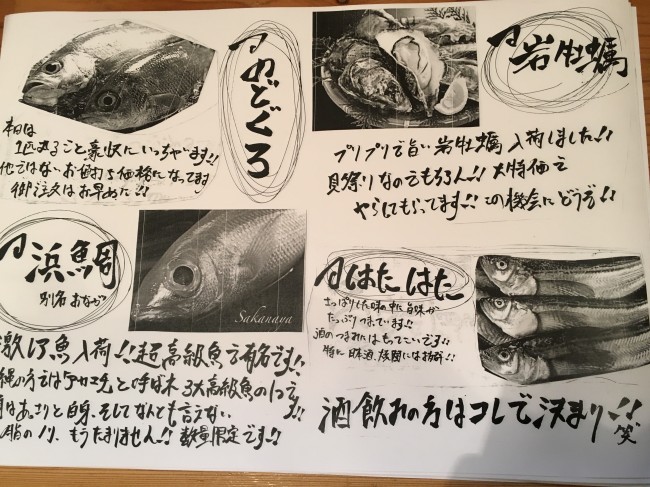 のどぐろ
本日は
1匹まるごと豪快にいっちゃいます!!
他ではないお値打ち価格になってます
御注文はお早めに!!
岩牡蠣
プリプリで旨い岩牡蠣入荷しました!!
貝祭りなのでもちろん!!大特価で
やらしてもらってます!!この機会にどうぞ!!
浜鯛
別名
Sakanaya
激レア魚入荷!!超高級魚で有名です!!
縄の方ではアカマチと呼ばれ3大高級魚の1つで
はあっさりと白身、そしてなんとも言えない
脂のノリ、もうたまりません!!数量限定です!!
はたはた
さっぱりした味の中に旨味が
たっぷりつまっています!!
酒のつまみにはもってこいです!!
特に日本酒、
酒飲みの方はコレで決まり!!
笑